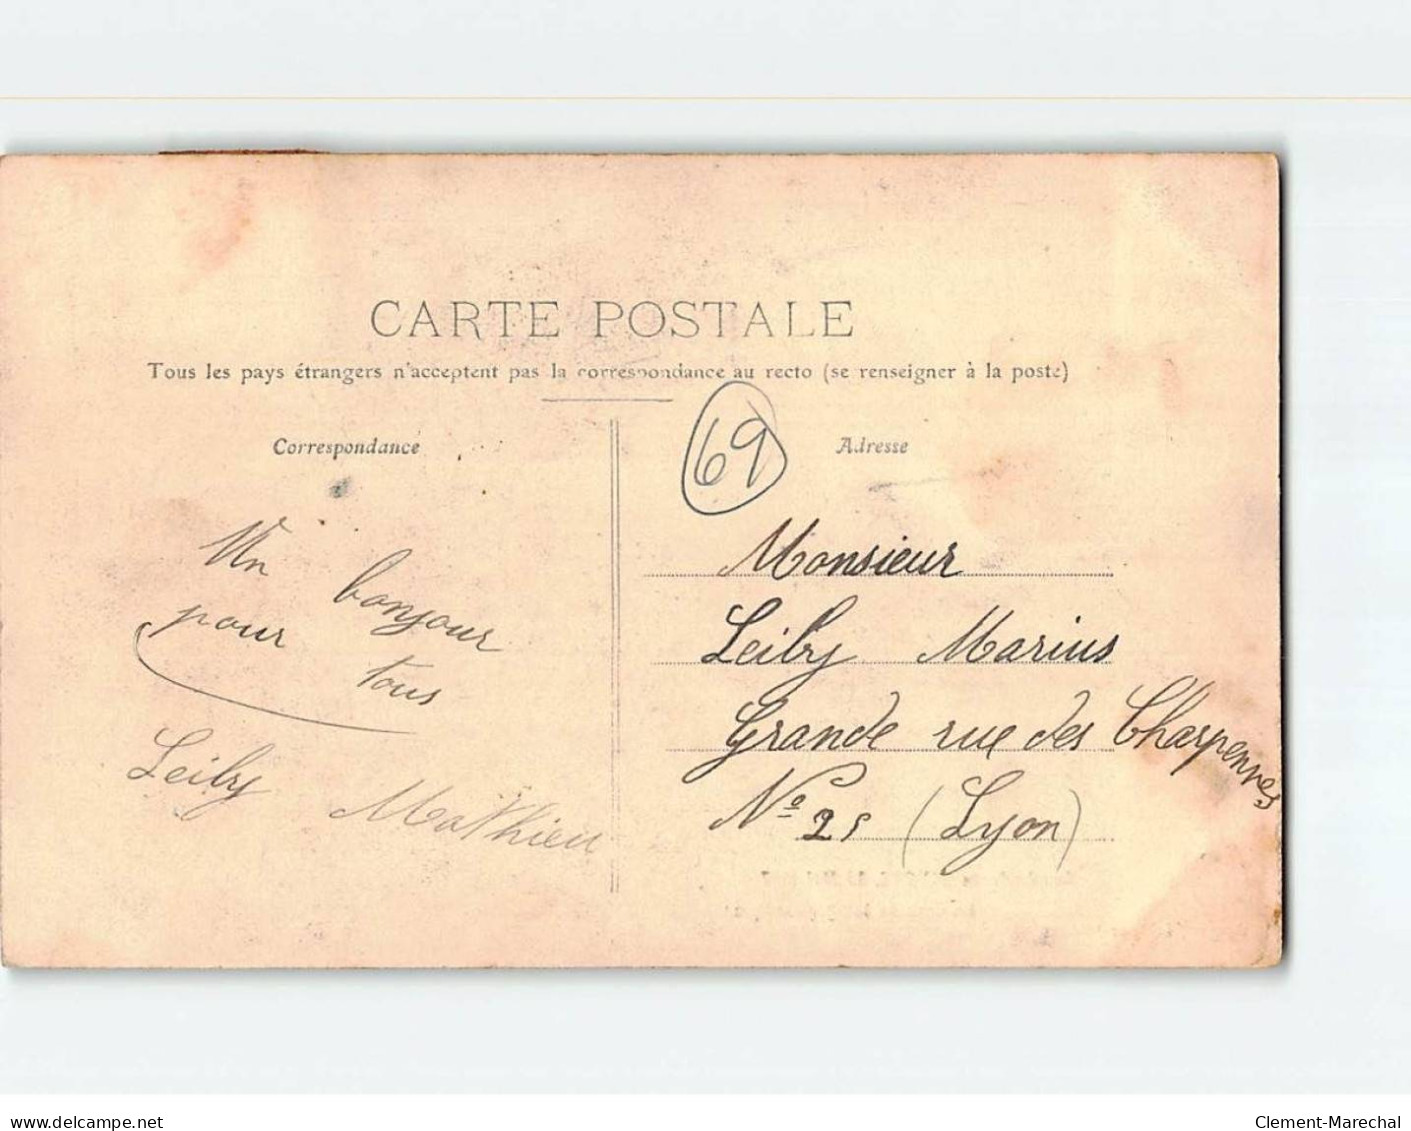 CARTE POSTALE
Tous les pays étrangers n'acceptent pas la correspondance au recto (se renseigner à la poste)
Correspondance
Adresse
69
Un bonjour
pour tous
Leiby Mathieu
Monsieur
Leiby Marius
Grande rue des Charpennes
Nº 25 (Lyon)
www.delcampe.net
Clement-Marechal